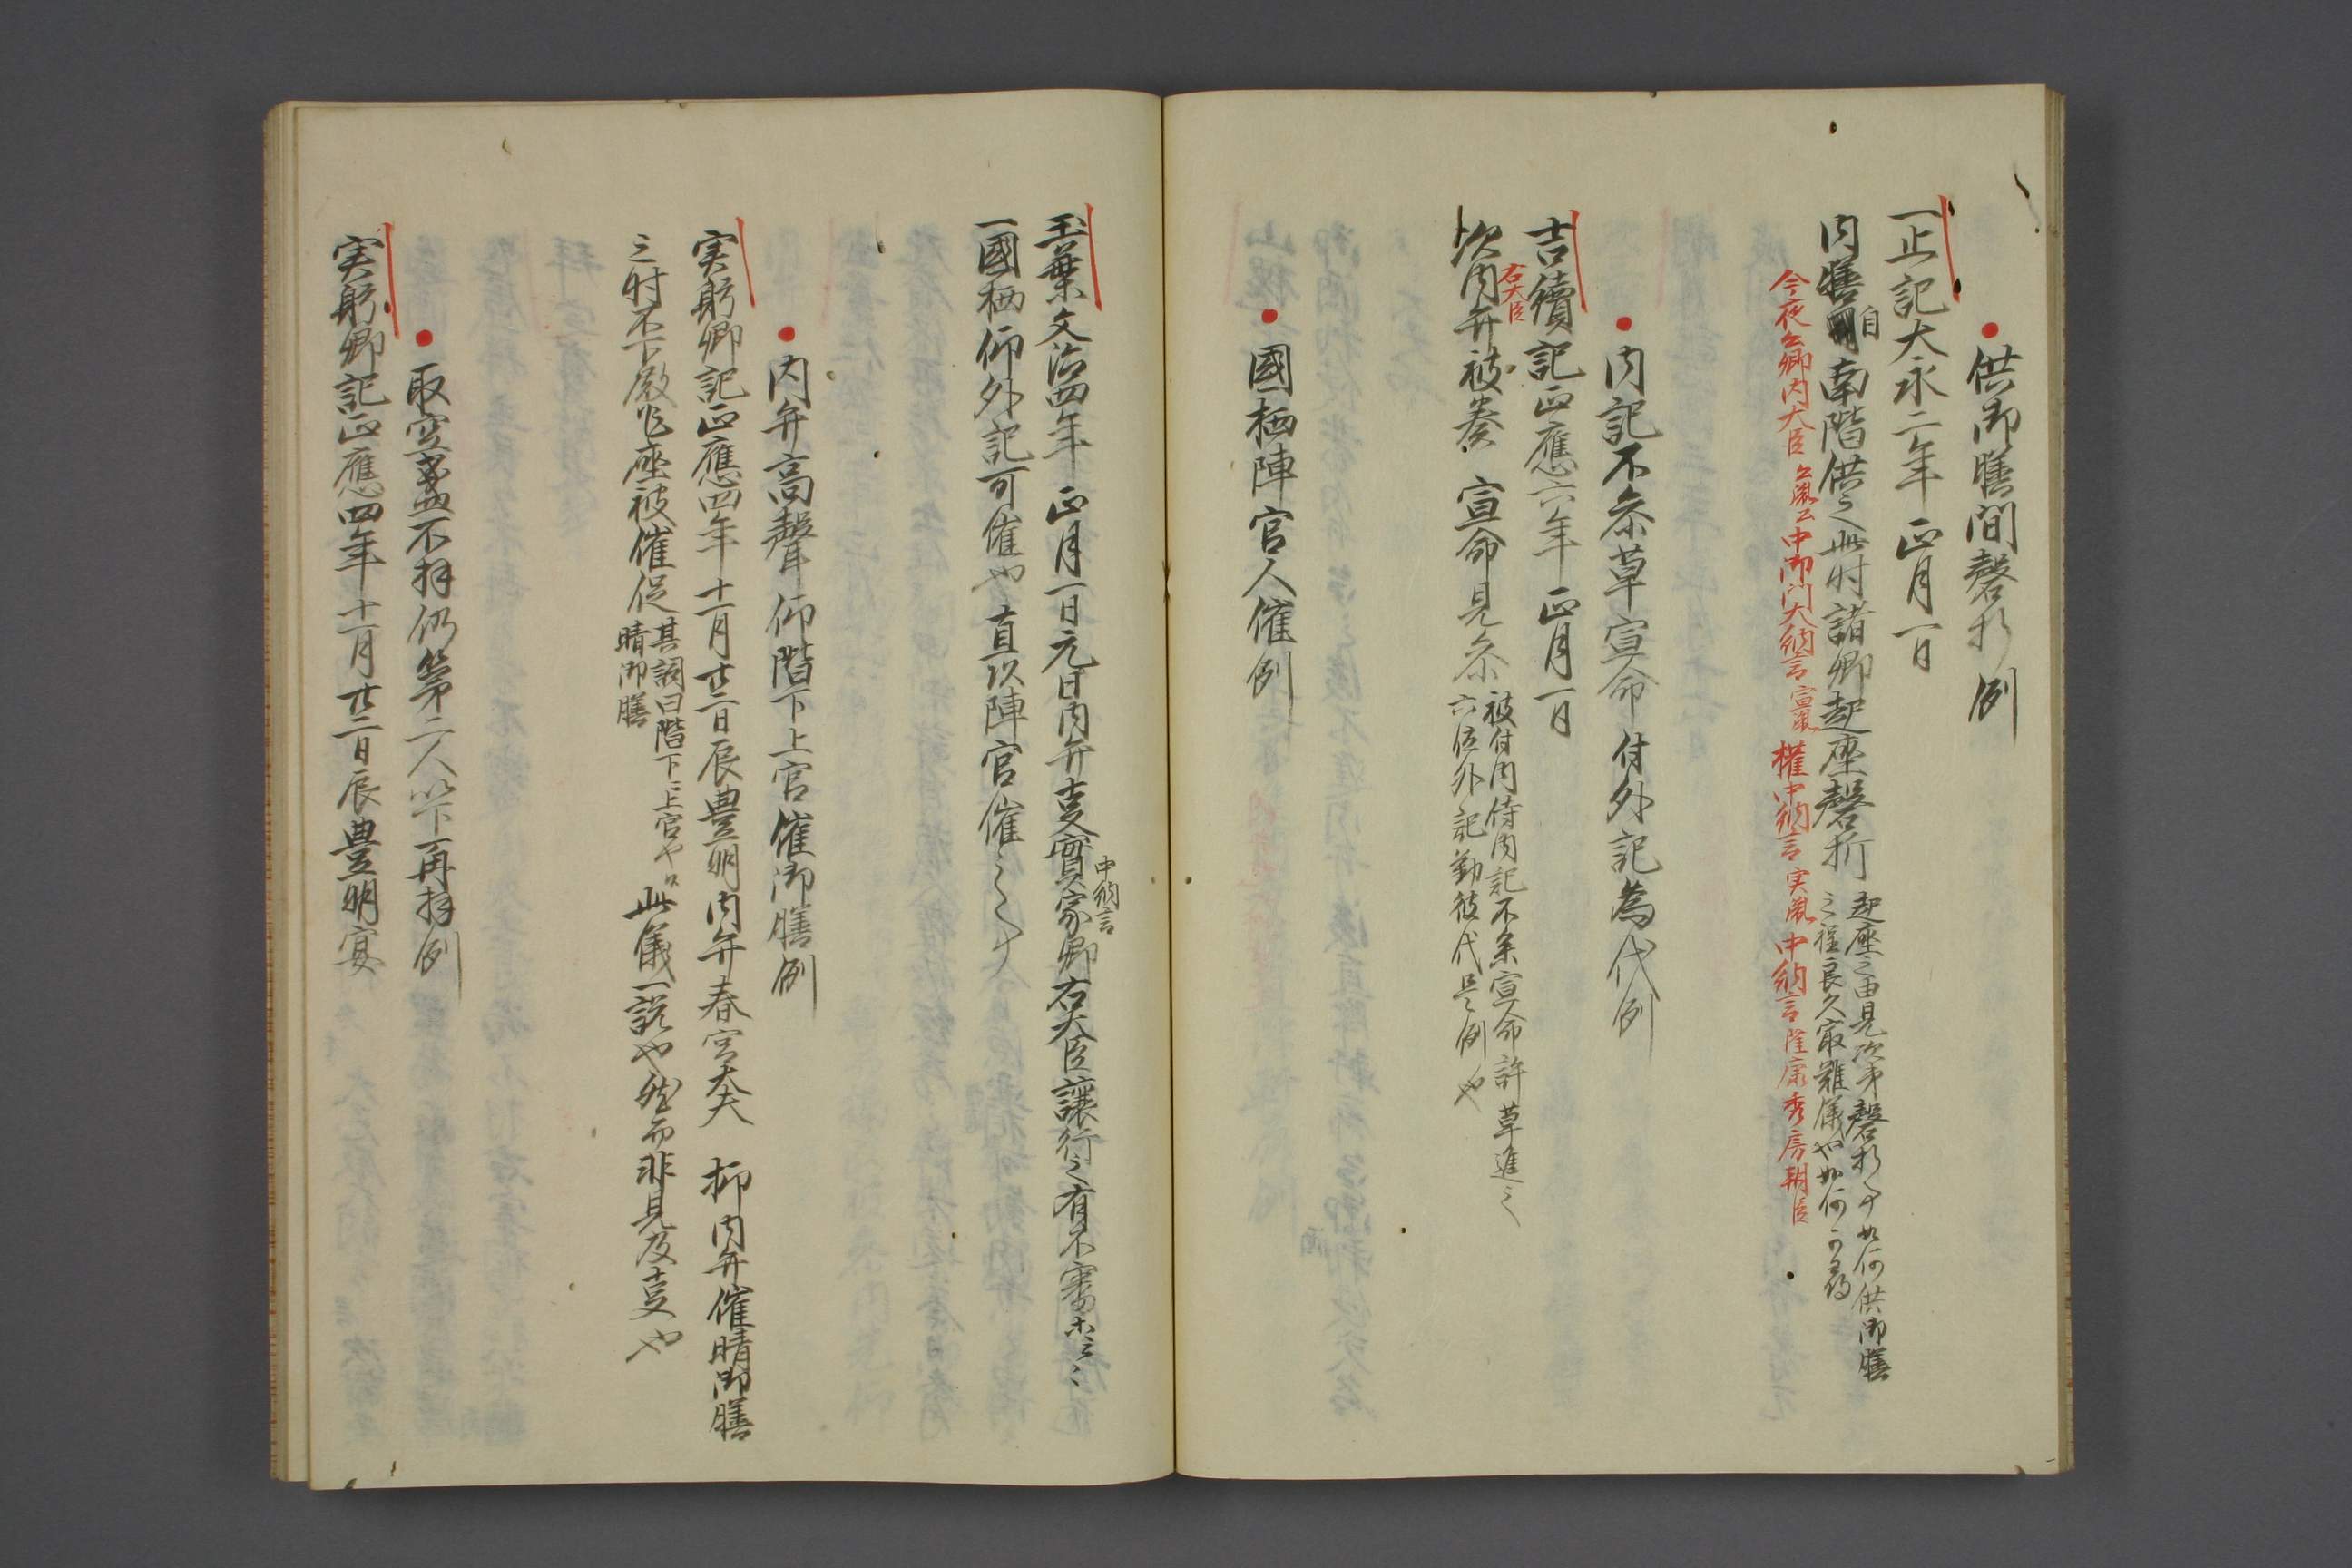 供御膳間磬折例
一止記大永二年正月一日
内膳自南階供之此時諸卿起座磬折
起座之由見次第磬折事如何供御膳
之程良久最難儀也如何可尋
今夜公卿内大臣 中御門大納言宣胤 権中納言実胤 中納言隆康 秀房朝臣
内記不参草宣命付外記為代例
吉續記正應六年正月一日
右大臣
次内弁被奏 宣命見参
被付内侍内記不参宣命許草進之
六位外記勤彼代是例也
國栖陣官人催例
玉葉文治四年正月一日元日内弁事実家卿右大臣譲行之有不審等云々
中納言
一國栖仰外記可催也直以陣官催之云々
内弁高聲仰階下上官催御膳例
実躬卿記正應四年十一月廿二日辰豊明内弁春宮大夫 抑内弁催晴御膳
之時不下殿乍座被催促
其詞曰階下上官ヤ
晴御膳
此儀一説也然而非見及事也
取空盞不拝仍第二人以下再拝例
実躬卿記正應四年十一月廿二日辰豊明宴